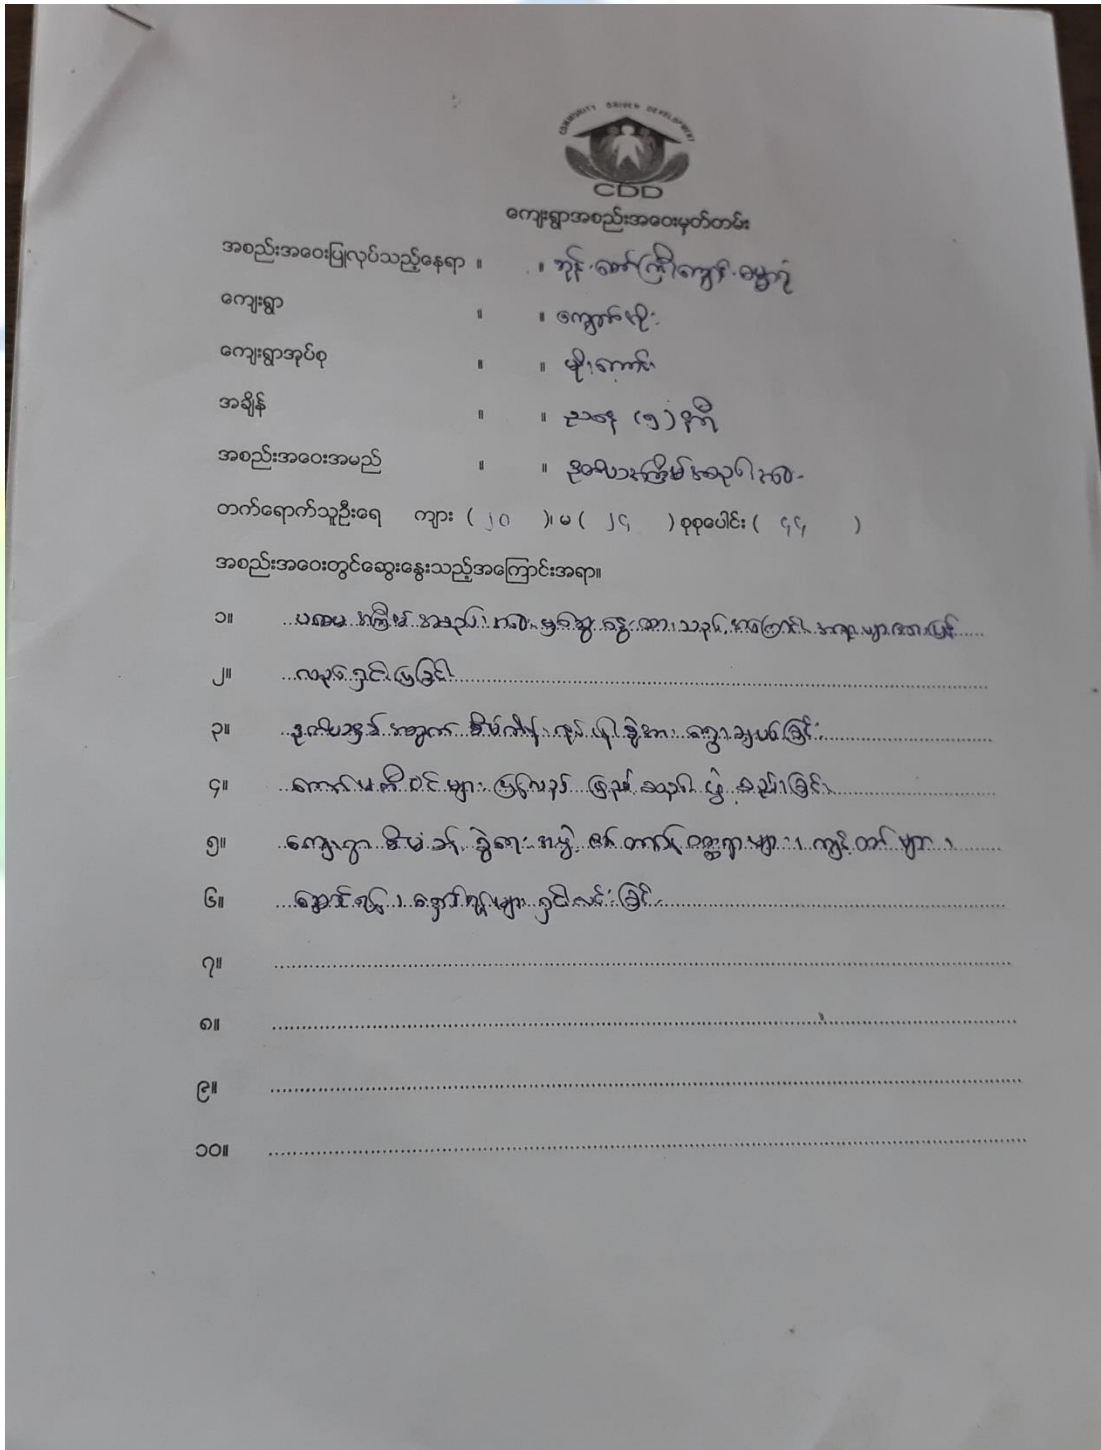 COMMUNITY DRIVEN DEVELOPMENT
CDD
ကျေးရွာအစည်းအဝေးမှတ်တမ်း
အစည်းအဝေးပြုလုပ်သည့်နေရာ ။ ။ ဘုန်းတော်ကြီးကျောင်း ဓမ္မာရုံ
ကျေးရွာ ။ ။
ကျေးရွာအုပ်စု ။ ။
အချိန် ။ ။ ညနေ (၅) နာရီ
အစည်းအဝေးအမည် ။ ။ ဒုတိယအကြိမ်အစည်းအဝေး
တက်ရောက်သူဦးရေ ကျား ( ၂၀ )၊ မ ( ၂၄ ) စုစုပေါင်း ( ၄၄ )
အစည်းအဝေးတွင်ဆွေးနွေးသည့်အကြောင်းအရာ။
၁။ ပထမ အကြိမ် အစည်းအဝေးမှ ဆွေးနွေးထားသည့် အကြောင်းအရာများအားပြန်
၂။ လည်ရှင်းပြခြင်း
၃။ ဒုတိယနှစ် အတွက် စီမံကိန်းလုပ်ငန်းခွဲအား ရွေးချယ်ခြင်း
၄။ ကော်မတီဝင်များ ပြန်လည် ဖွဲ့စည်းခြင်း
၅။ ကျေးရွာ စီမံခန့်ခွဲရေး အဖွဲ့ ၏ တာဝန် ဝတ္တရားများ ၊ ကျင့်ဝတ်များ ၊
၆။ ဆောင်ရန် ၊ ရှောင်ရန်များ ရှင်းလင်းခြင်း
၇။
၈။
၉။
၁၀။